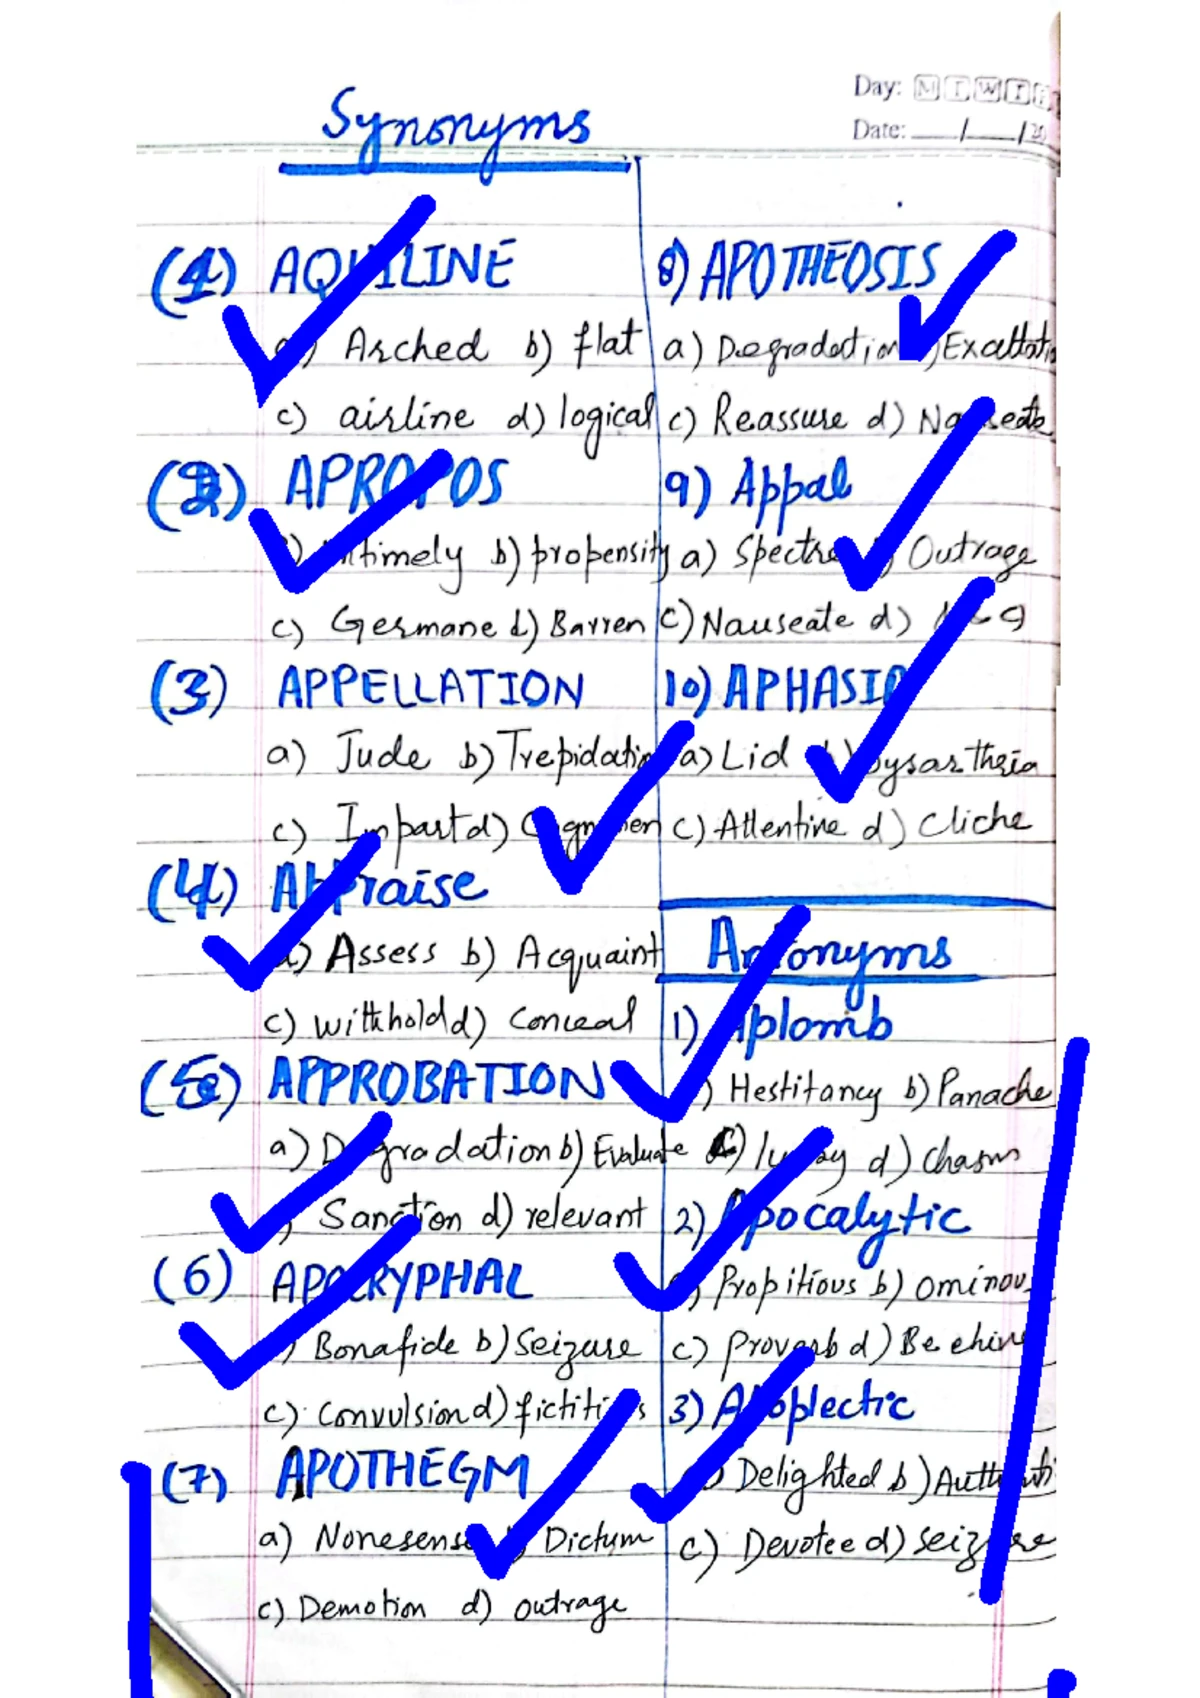 Day: M T W T F
Date: ___/___/20
Synonyms
(1) AQUILINE
a) Arched b) flat
c) airline d) logical
(2) APROPOS
timely b) propensity
c) Germane d) Barren
(3) APPELLATION
a) Jude b) Trepidatio
c) Impart d)
(4) Appraise
a) Assess b) Acquaint
c) withhold d) Conceal
(5) APPROBATION
a) Degradation b) Evaluate
Sanction d) relevant
(6) APOCRYPHAL
) Bonafide b) Seizure
c) Convulsion d) fictiti s
(7) APOTHEGM
a) Nonesense b) Dictum
c) Demotion d) outrage
8) APOTHEOSIS
a) Degradation b) Exaltatio
c) Reassure d) Nauseate
9) Appal
a) Spectre b) Outrage
c) Nauseate d)
10) APHASIA
a) Lid b) Dysarthria
c) Attentive d) Cliche
Antonyms
1) Aplomb
) Hestitancy b) Panache
c) d) Chasm
2) Apocalytic
) Propitious b) ominou
c) Proverb d) Beehive
3) Apoplectic
) Delighted b)
c) Devotee d) seizure